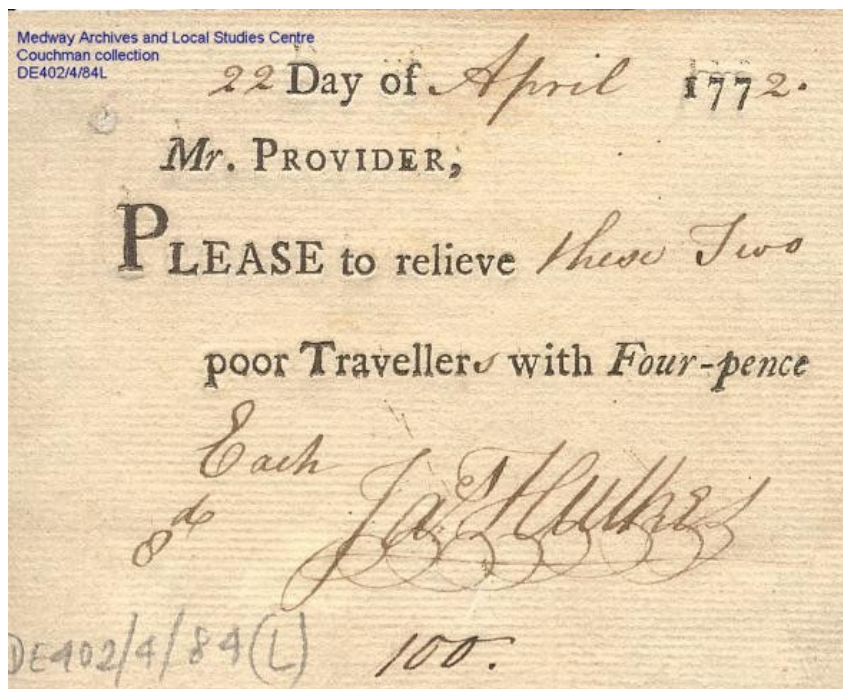 Medway Archives and Local Studies Centre
Couchman collection
DE402/4/84L
22 Day of April 1772.
Mr. PROVIDER,
PLEASE to relieve these Two
poor Travellers with Four-pence
Each
8d
Jas Hulkes
DE402/4/84(L)
100.